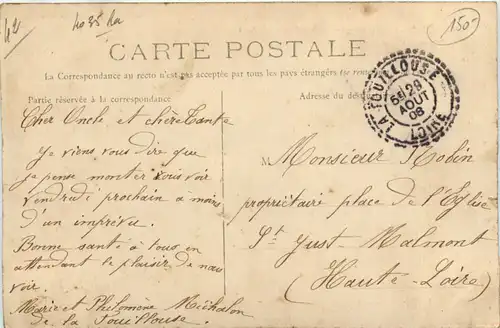 42
4035 Aa
150-
CARTE POSTALE
La Correspondance au recto n'est pas acceptée par tous les pays étrangers (se
Partie réservée à la correspondance
Adresse du des
LA FOUILLOUSE
29
AOUT
08
LOIRE
Cher Oncle et chère Tante
Je viens vous dire que
je pense monter vous voir
vendredi prochain à moins
d'un imprévu.
Bonne santé à tous en
attendant le plaisir de nous
voir.
Marie et Philomène Michalon
de la Fouillouse.
M Monsieur Robin
propriétaire place de l'Eglise
St Just-Malmont
(Haute-Loire)